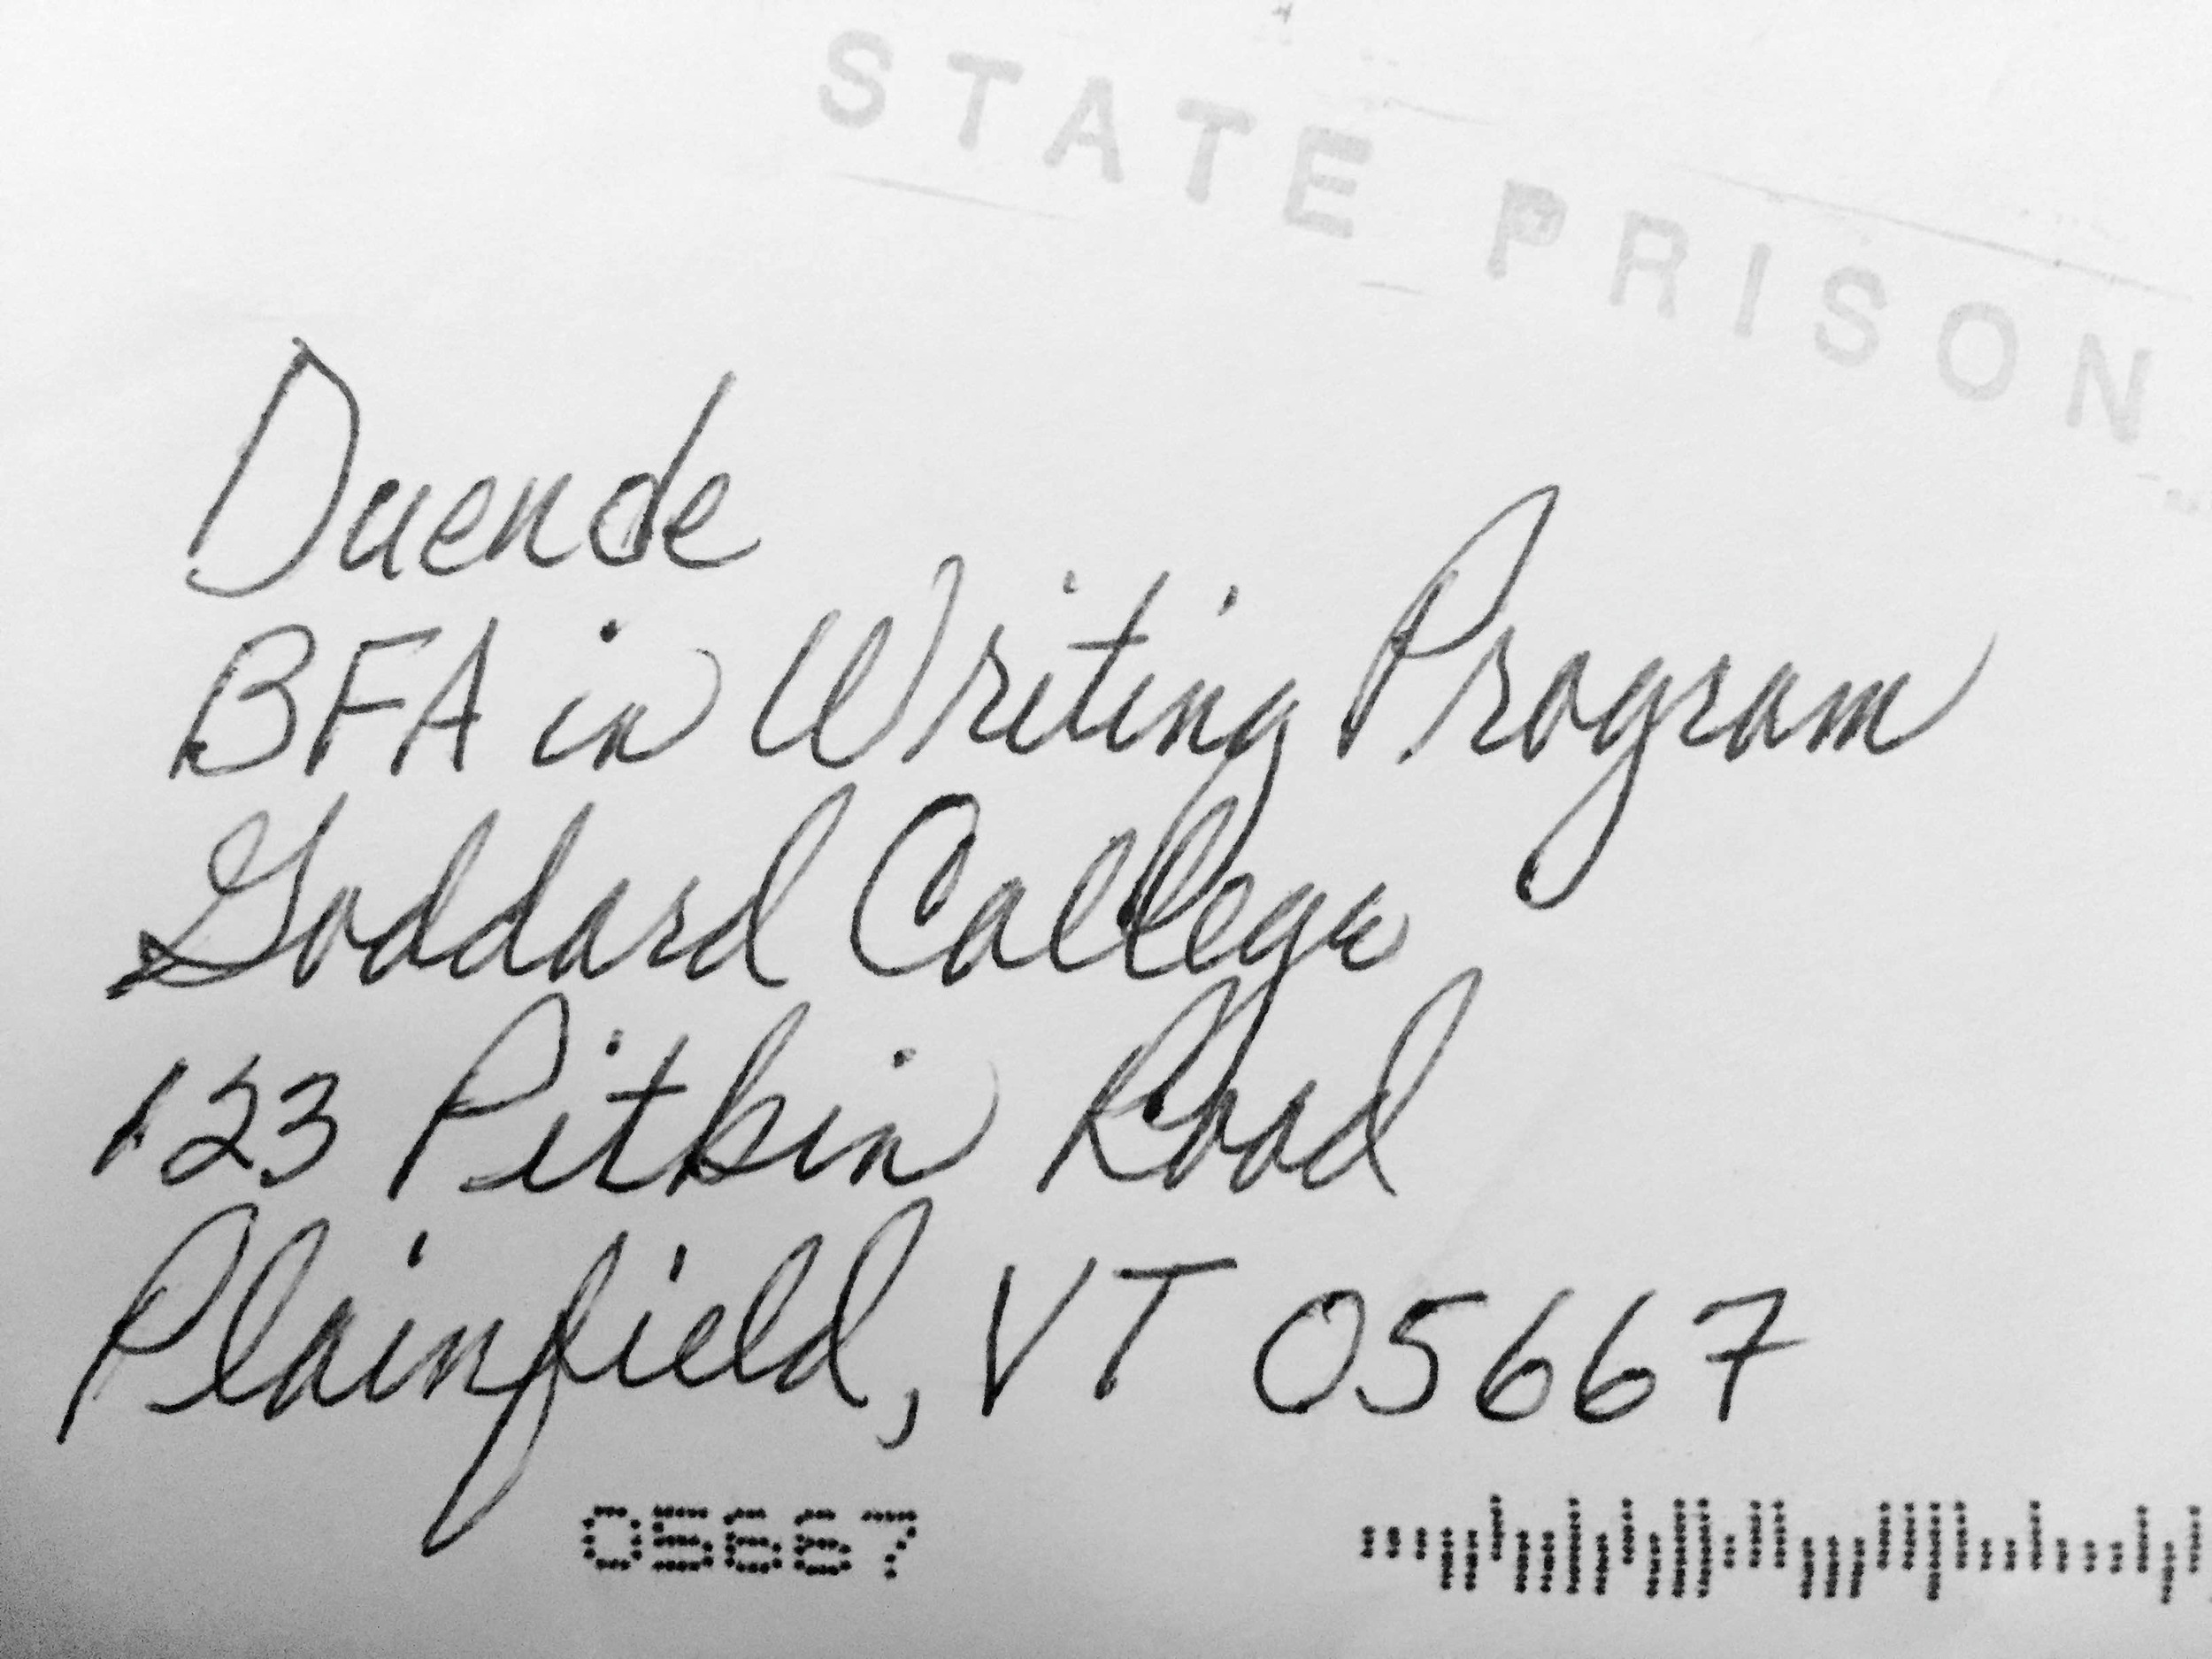 STATE PRISON
Duende
BFA in Writing Program
Goddard College
123 Pitkin Road
Plainfield, VT 05667
05667